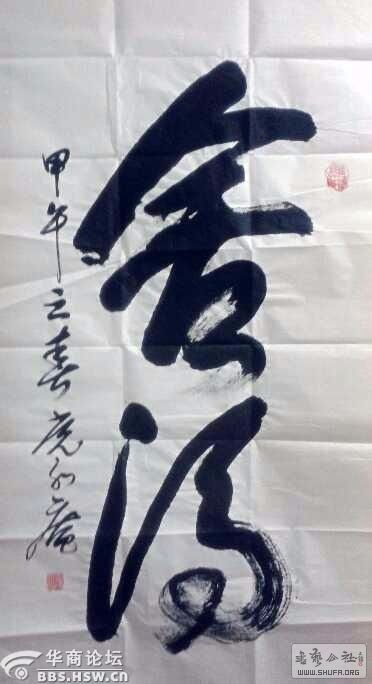 舍得
甲午之春
华商论坛
BBS.HSW.CN
书艺公社
WWW.SHUFA.ORG